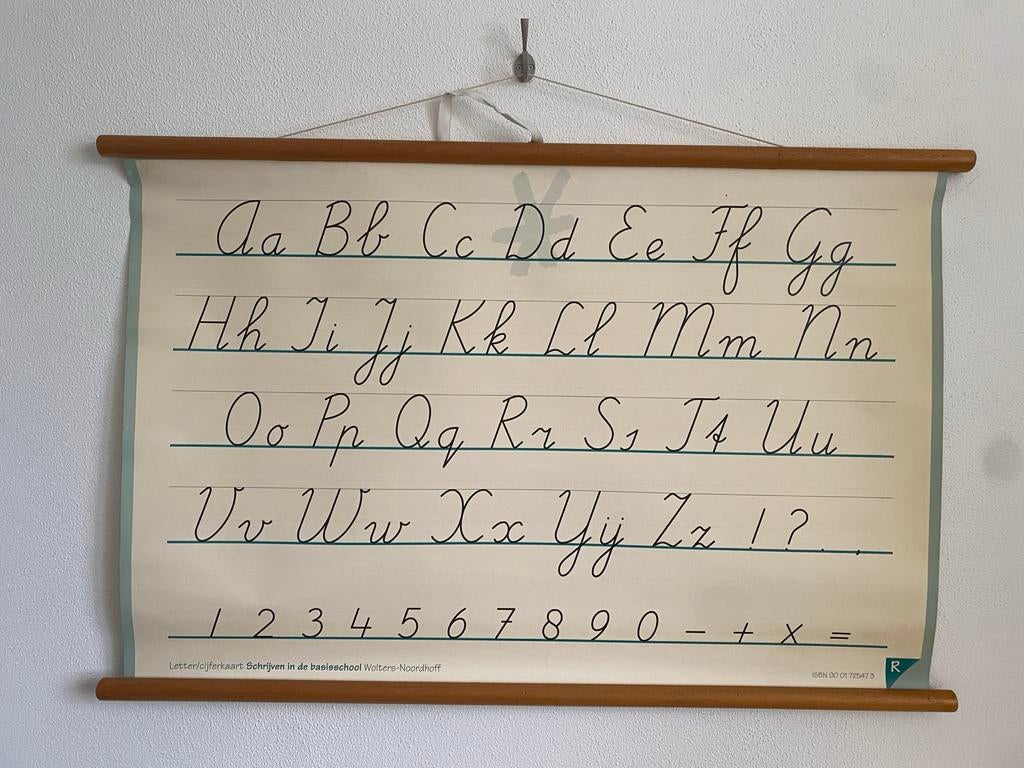 Aa Bb Cc Dd Ee Ff Gg
Hh Ii Jj Kk Ll Mm Nn
Oo Pp Qq Rr Ss Tt Uu
Vv Ww Xx Yÿ Zz ! ? . ,
1 2 3 4 5 6 7 8 9 0 - + x =
Letter/cijferkaart Schrijven in de basisschool Wolters-Noordhoff
ISBN 90 01 72547 3
R